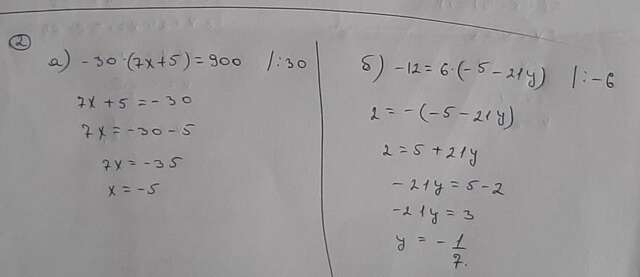 2
а) -30·(7x+5)=900 /:30
7x+5=-30
7x=-30-5
7x=-35
x=-5
б) -12=6·(-5-21y) /:-6
2=-(-5-21y)
2=5+21y
-21y=5-2
-21y=3
y=-1/7.